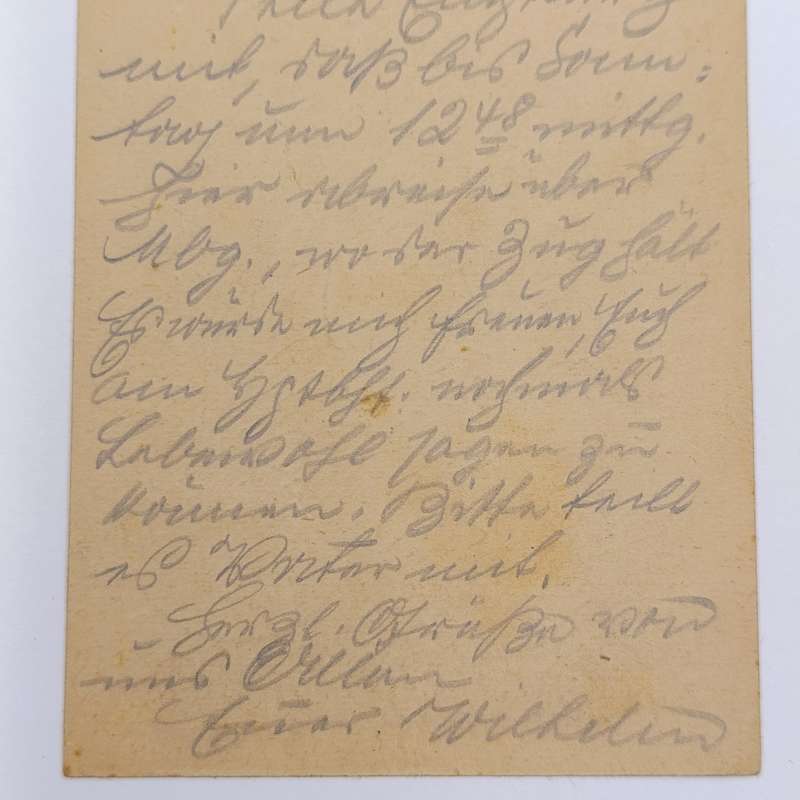 mit, daß bis Sonn=
tag um 12 48 mittg.
hier abreise über
Mbg., wo der Zug hält
Es würde mich freuen, Euch
am Hptbhf. nochmals
Lebewohl sagen zu
können. Bitte teilt
es Vater mit.
Herzl. Grüße von
uns Allen
Euer Wilhelm